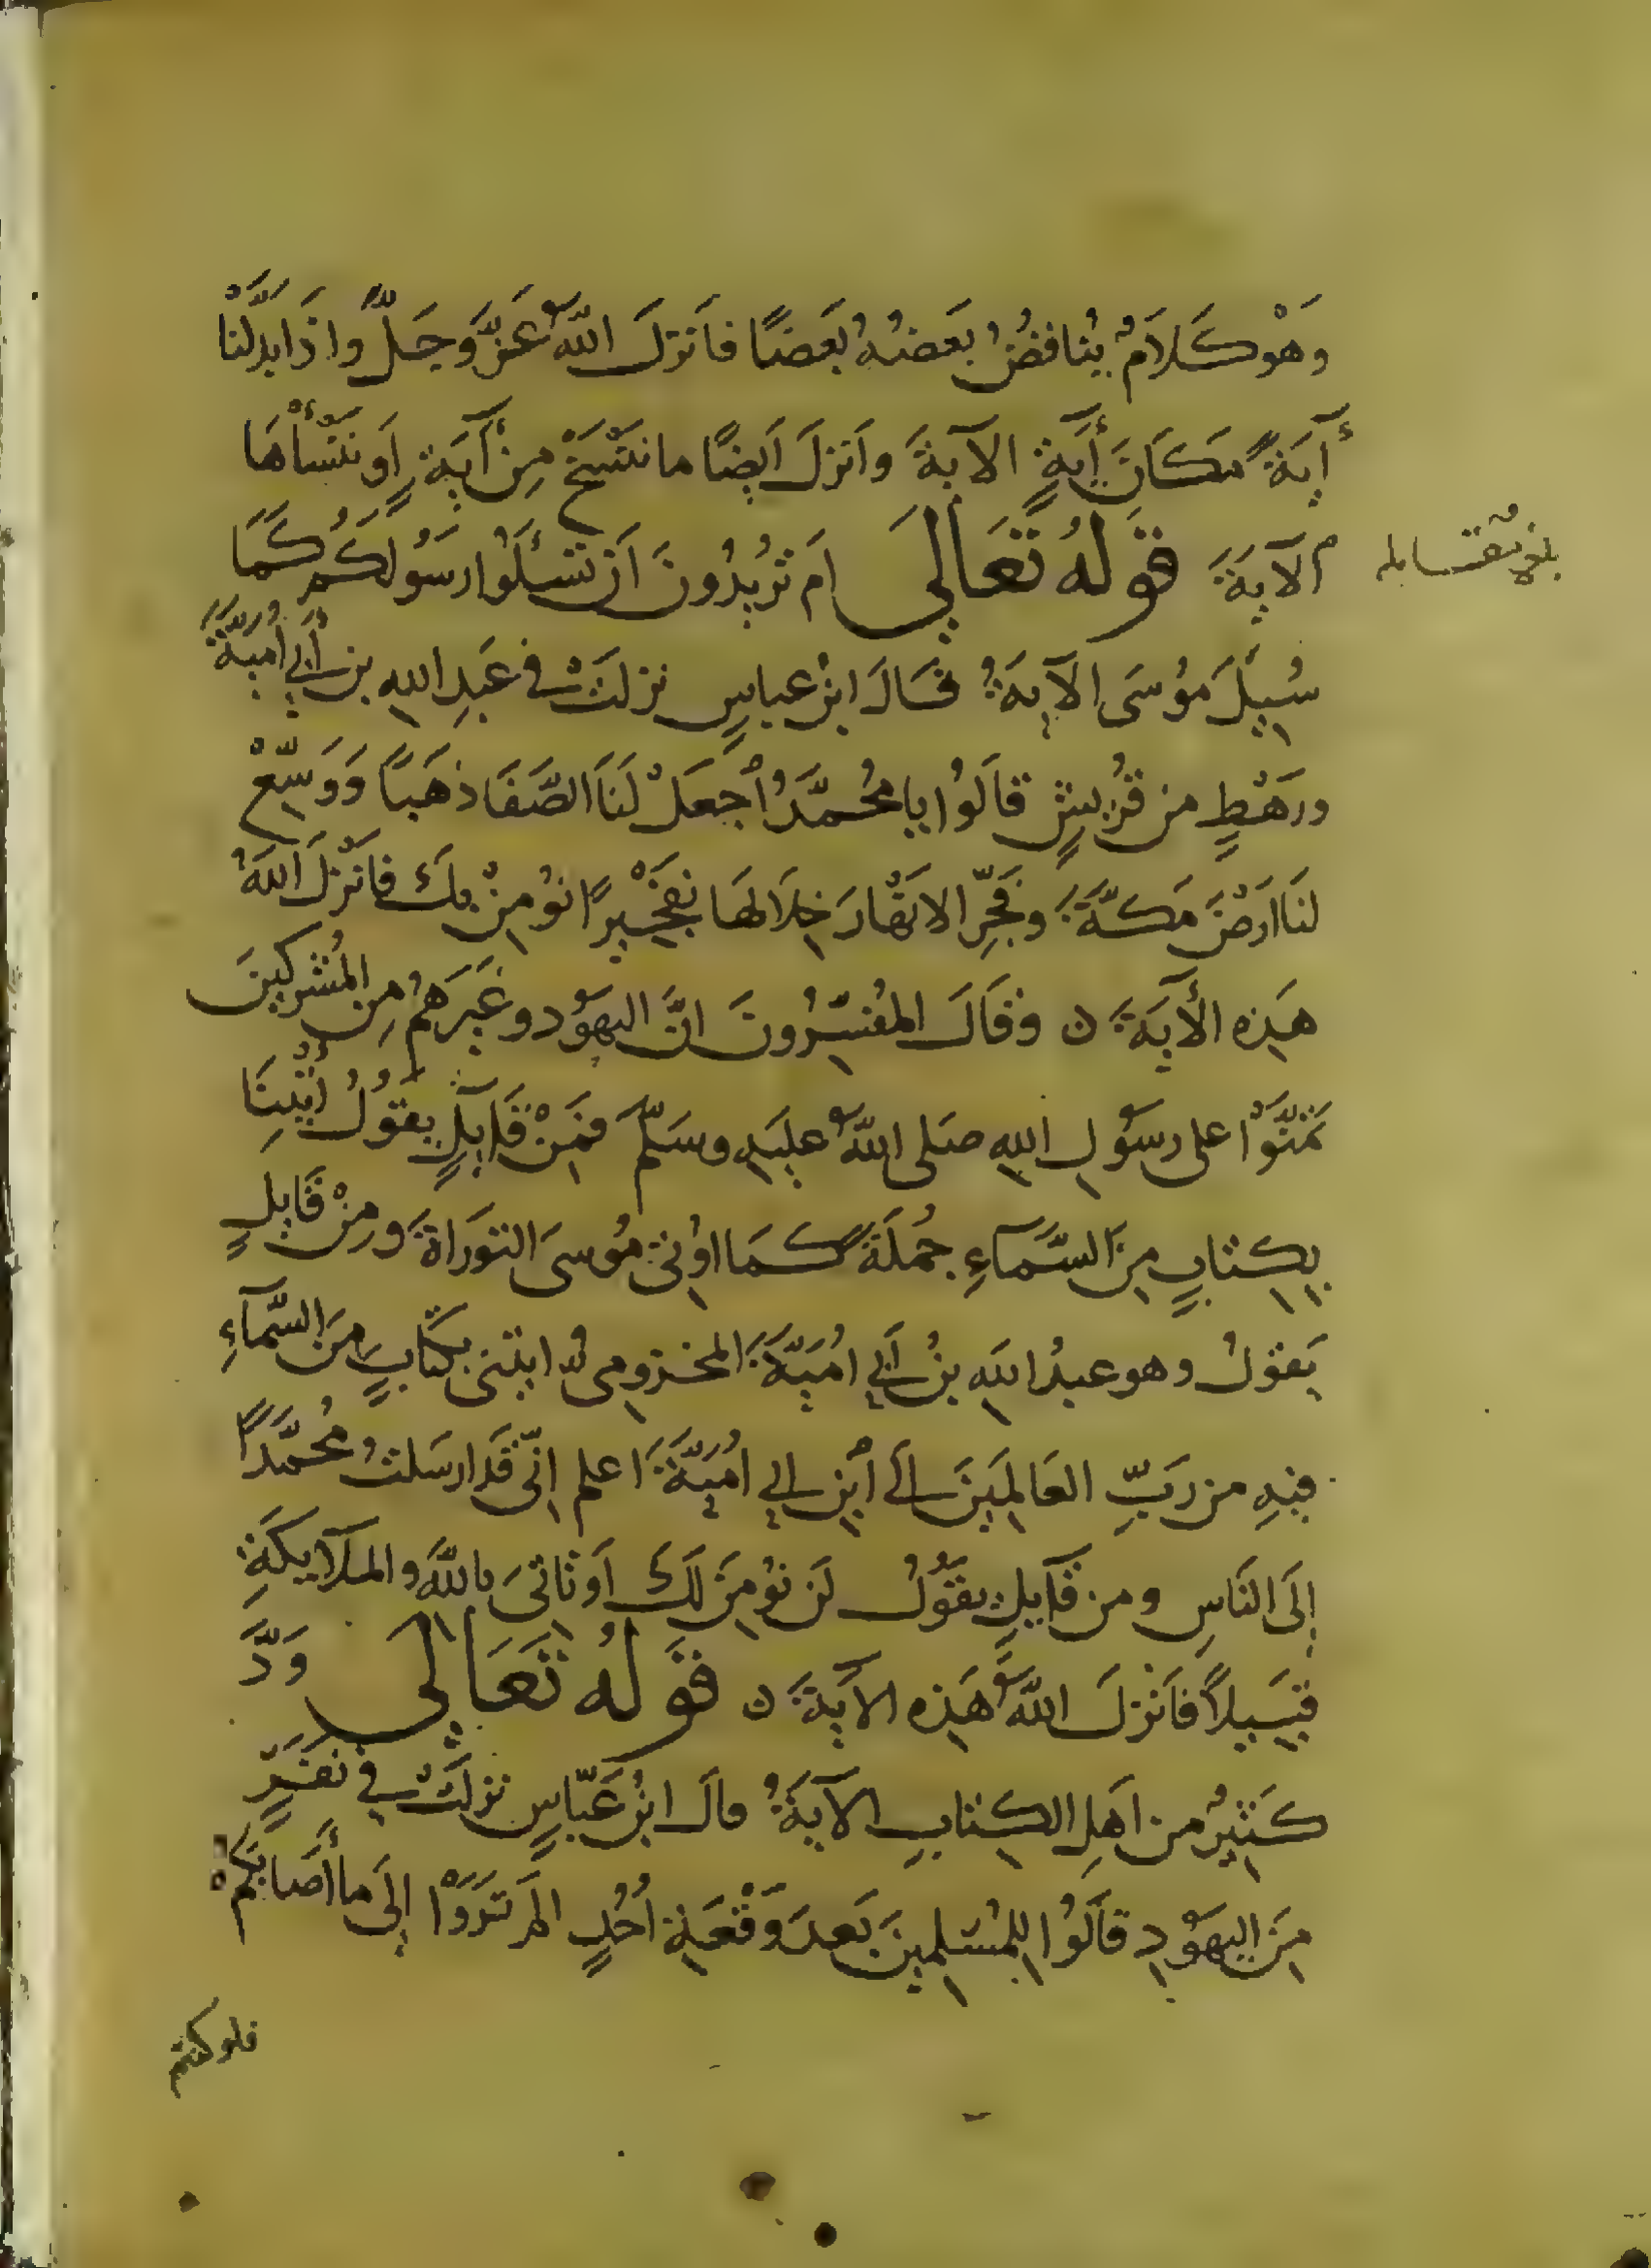 وَهْوَ كَلَامٌ يُنَاقِضُ بَعضُهُ بَعضًا فَانزلَ اللَّهُ عَزَّ وَجَلَّ واذَا بَدَّلْنا
آيَةً مَكَانَ آيَةٍ الآيةَ وانزلَ ايضًا ما نَنْسَخْ مِنْ آيَةٍ اَو نَنْسَأْهَا
الآيَةَ قَولُهُ تَعَالَى اَم تُريدُونَ اَن تَسْـَٔلُوا رَسُولَكُم كَمَا
سُيِلَ مُوسَى الآيةُ قَالَ ابنُ عباسٍ نزلَتْ في عَبدِ اللهِ بن أَبي اُمَيَّةَ
ورَهْطٍ من قُرَيشٍ قالُوا يا مُحُمَّدُ اْجعَلْ لَنَا الصَّفَا ذهَبًا وَوَسِّعْ
لنَا ارَضَ مَكَّةَ وفَجِّرِ الانَهَارَ خِلَالهَا تَفْجِيرًا نُومِنْ بِكَ فانْزلَ اللهُ
هَذِه الأيَةَ ن وقَالَ المُفسِّرُونَ انَّ اليهوُد وغَيرَهُم مِن المُشرِكينَ
تمَنَّوْا على رسوُلِ اللهِ صَلى اللَّهُ عليَهِ وسَلَّم فمَنْ قَآيلٍ يقوُلُ اْيْتِنَا
بِكِتابٍ مِنَ السَّمَآءِ جُملَةً كَمَا اوُتىَ مُوسىَ التَورَاةَ ومِنْ قَايلٍ
يَقولُ وهو عبدُ اللهِ بنُ أَبي اُمَيَّةَ المخزومى ايتنى بكتَابٍ مِنَ السَّمآءِ
فيهِ من رَبِّ العَالَمِينَ الى اْبنِ ابي اُمَيَّةَ اعلم انِّى قَد ارسَلتُ مُحُمَّدًا
اِلَى النَاسِ ومن قَآيلٍ يقَوُلُ لَن نُومِنَ لَكَ اَو تَاتىَ باللَّهِ والملَآيكَةِ
قبَيلًا فَانزلَ اللهُ هَذِه الآيةَ ن قَولُهُ تَعَالَى وَدَّ
كَثِيرٌ من اَهلِ الكِتابِ الآيَةُ قالَ ابنُ عَبّاسٍ نزلَتْ في نَفَرٍ
مِنَ اليهَوُدِ قَالُوا لِلمُسْلِمينَ بَعدَ وَقْعَةِ اُحُدٍ الَم تَرَوْا اِلَى ما أصَابَكُم
فلو كنتم
بلغ مقابله